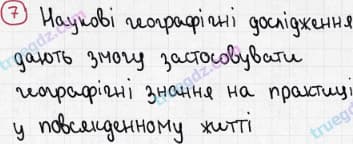 7 Наукові географічні дослідження
дають змогу застосовувати
географічні знання на практиці
у повсякденному житті